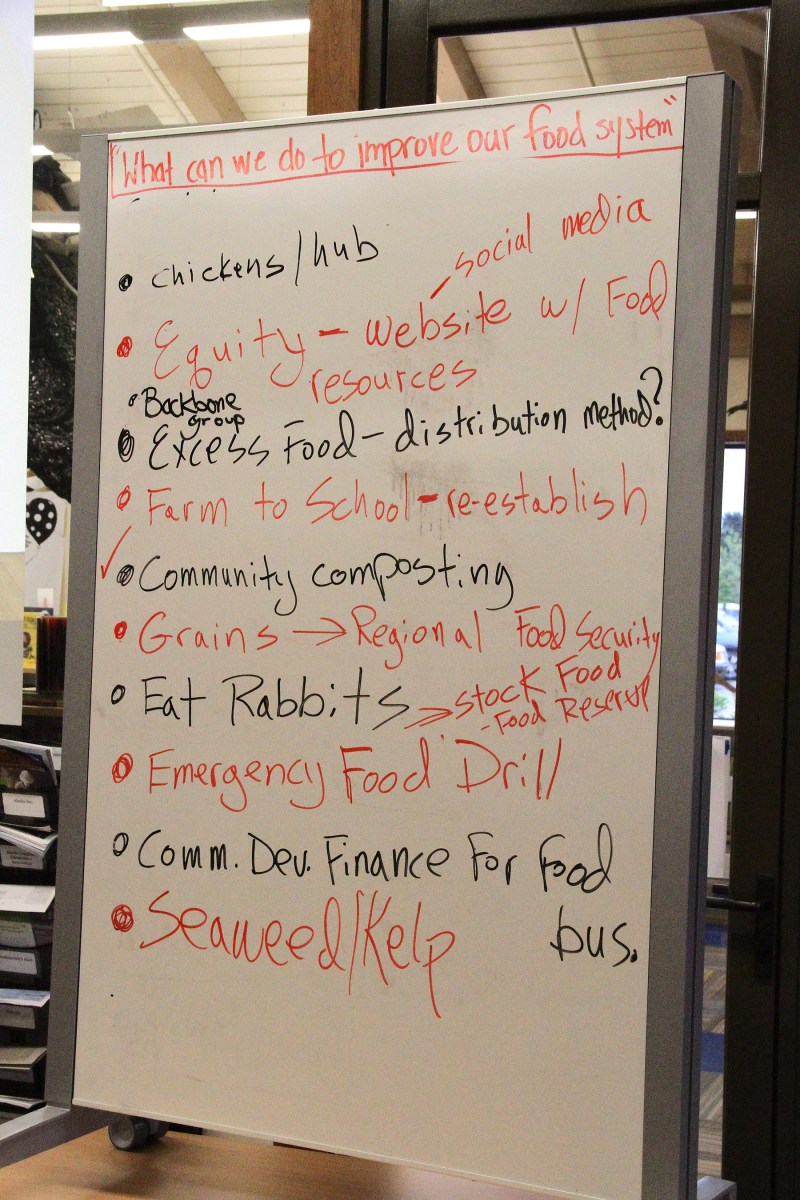 "What can we do to improve our food system"
• chickens/hub
social media
• Equity - website w/ Food
resources
• Backbone
group
• Excess Food - distribution method?
• Farm to School - re-establish
✓
• Community composting
• Grains → Regional Food Security
• Eat Rabbits → stock Food
- Food Reserve
• Emergency Food Drill
• Comm. Dev. Finance For Food
bus.
• Seaweed/Kelp